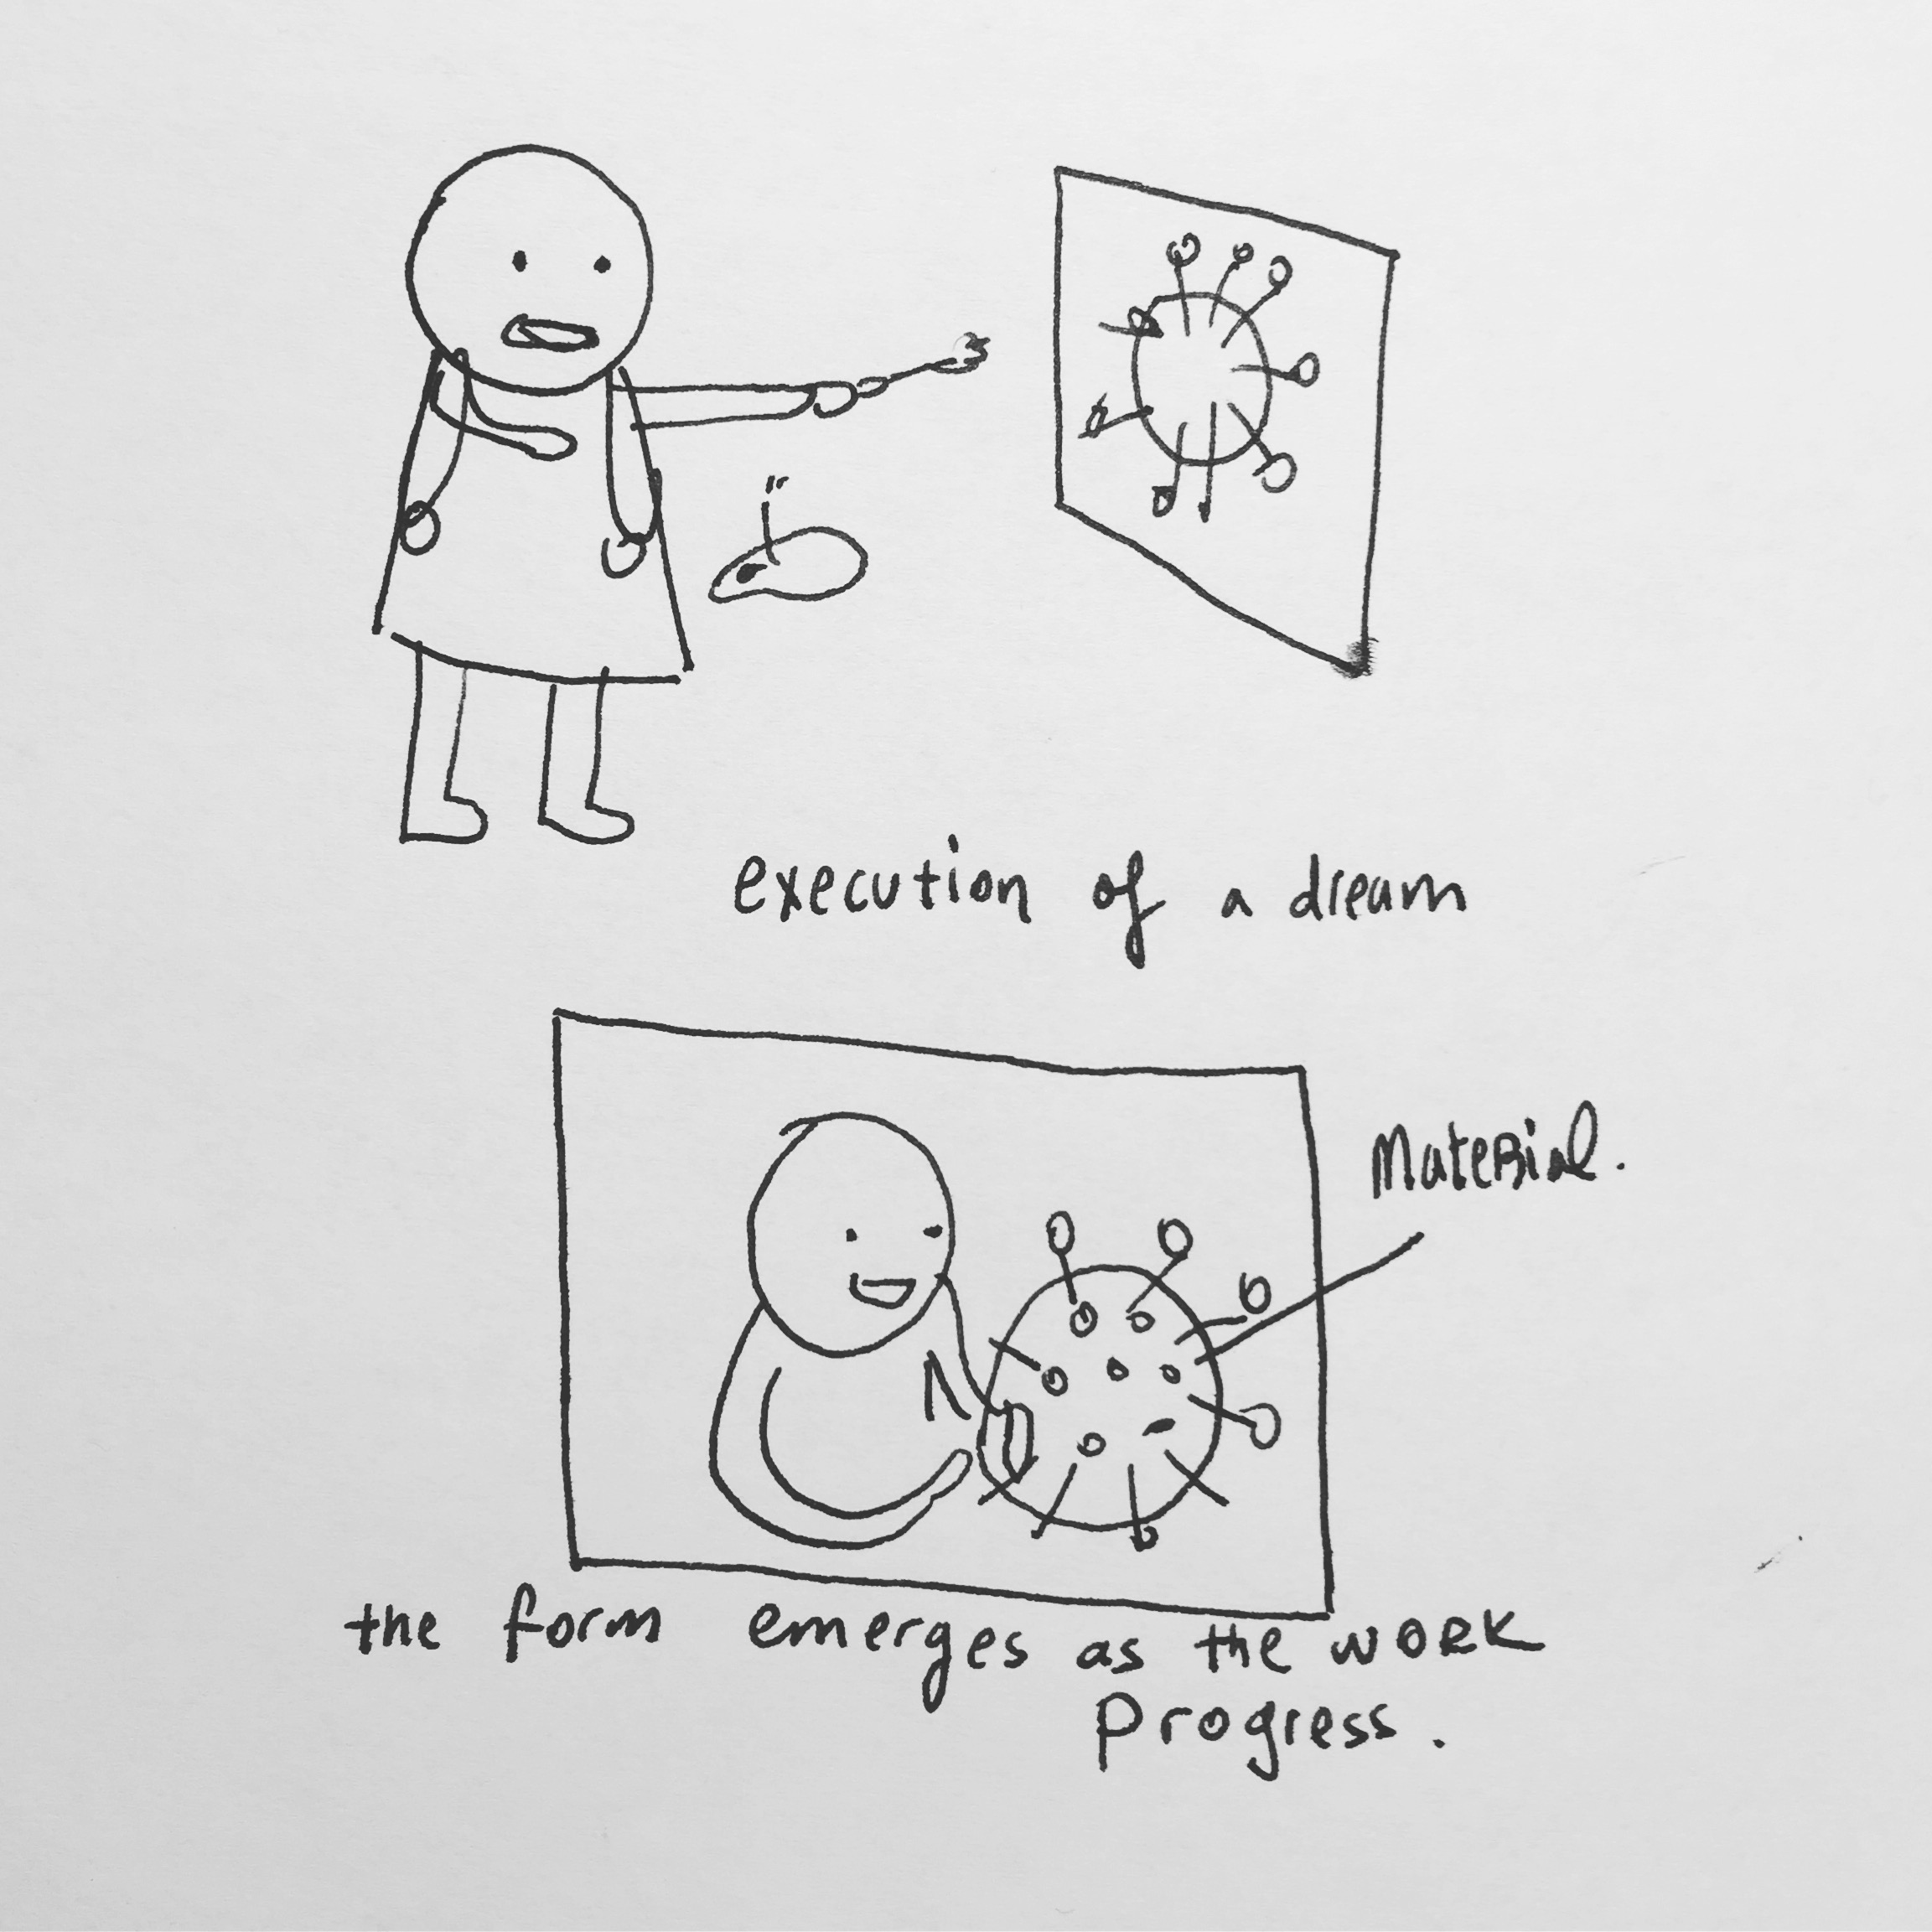 execution of a dream
Material.
the form emerges as the work
progress.